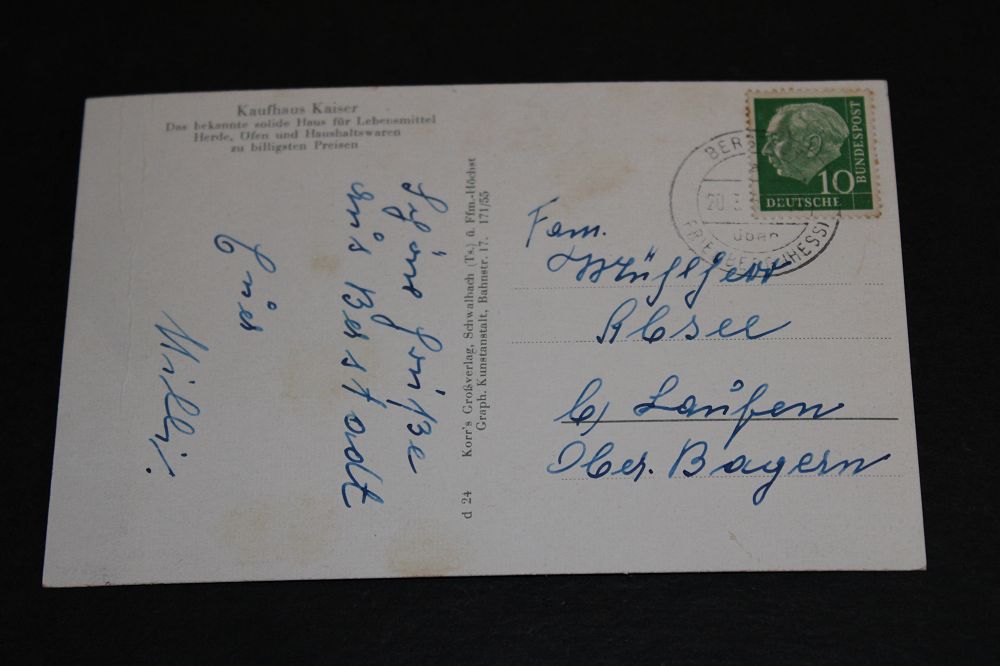 Kaufhaus Kaiser
Das bekannte solide Haus für Lebensmittel
Herde, Öfen und Haushaltswaren
zu billigsten Preisen
Schöne Grüße
aus Berstadt
Euer
Willi.
d 24 Korr's Großverlag, Schwalbach (Ts.) ü. Ffm.-Höchst
Graph. Kunstanstalt, Bahnstr. 17. 171/55
10
DEUTSCHE
BUNDESPOST
BER
20. 3.
über
FRIEDBERG (HESS)
Fam.
Mühlherr
Absee
b/ Laufen
Ober. Bayern